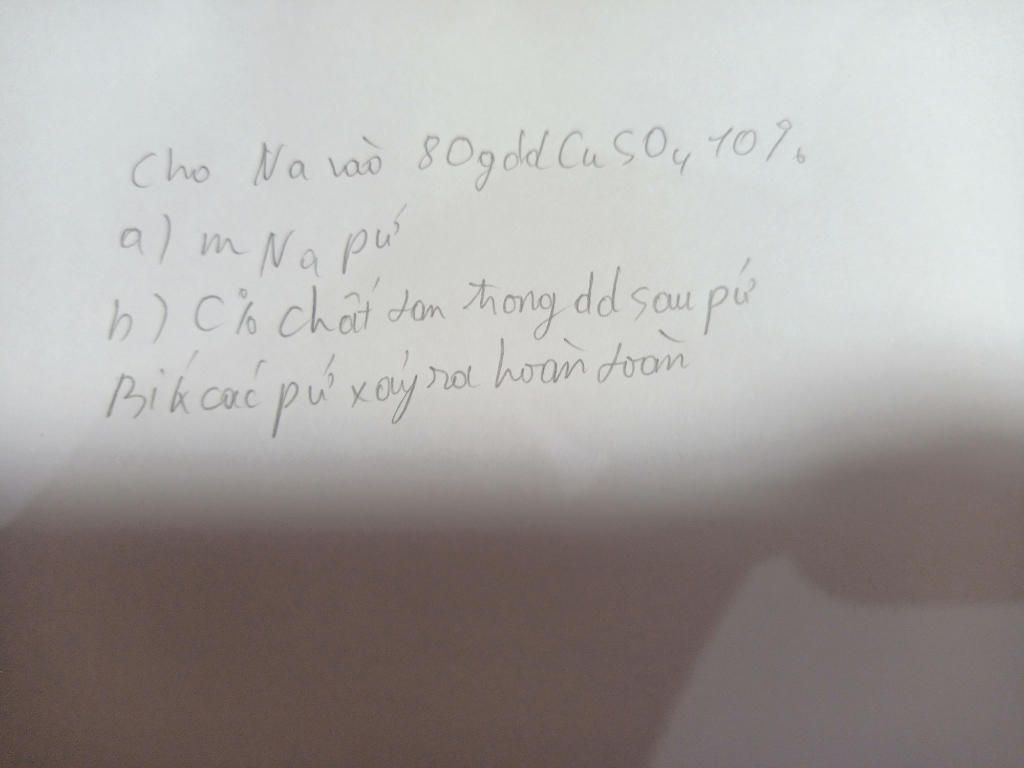 Cho Na vào 80g dd CuSO4 10%
a) m Na pứ
b) C% chất tan trong dd sau pứ
Bik các pứ xảy ra hoàn toàn